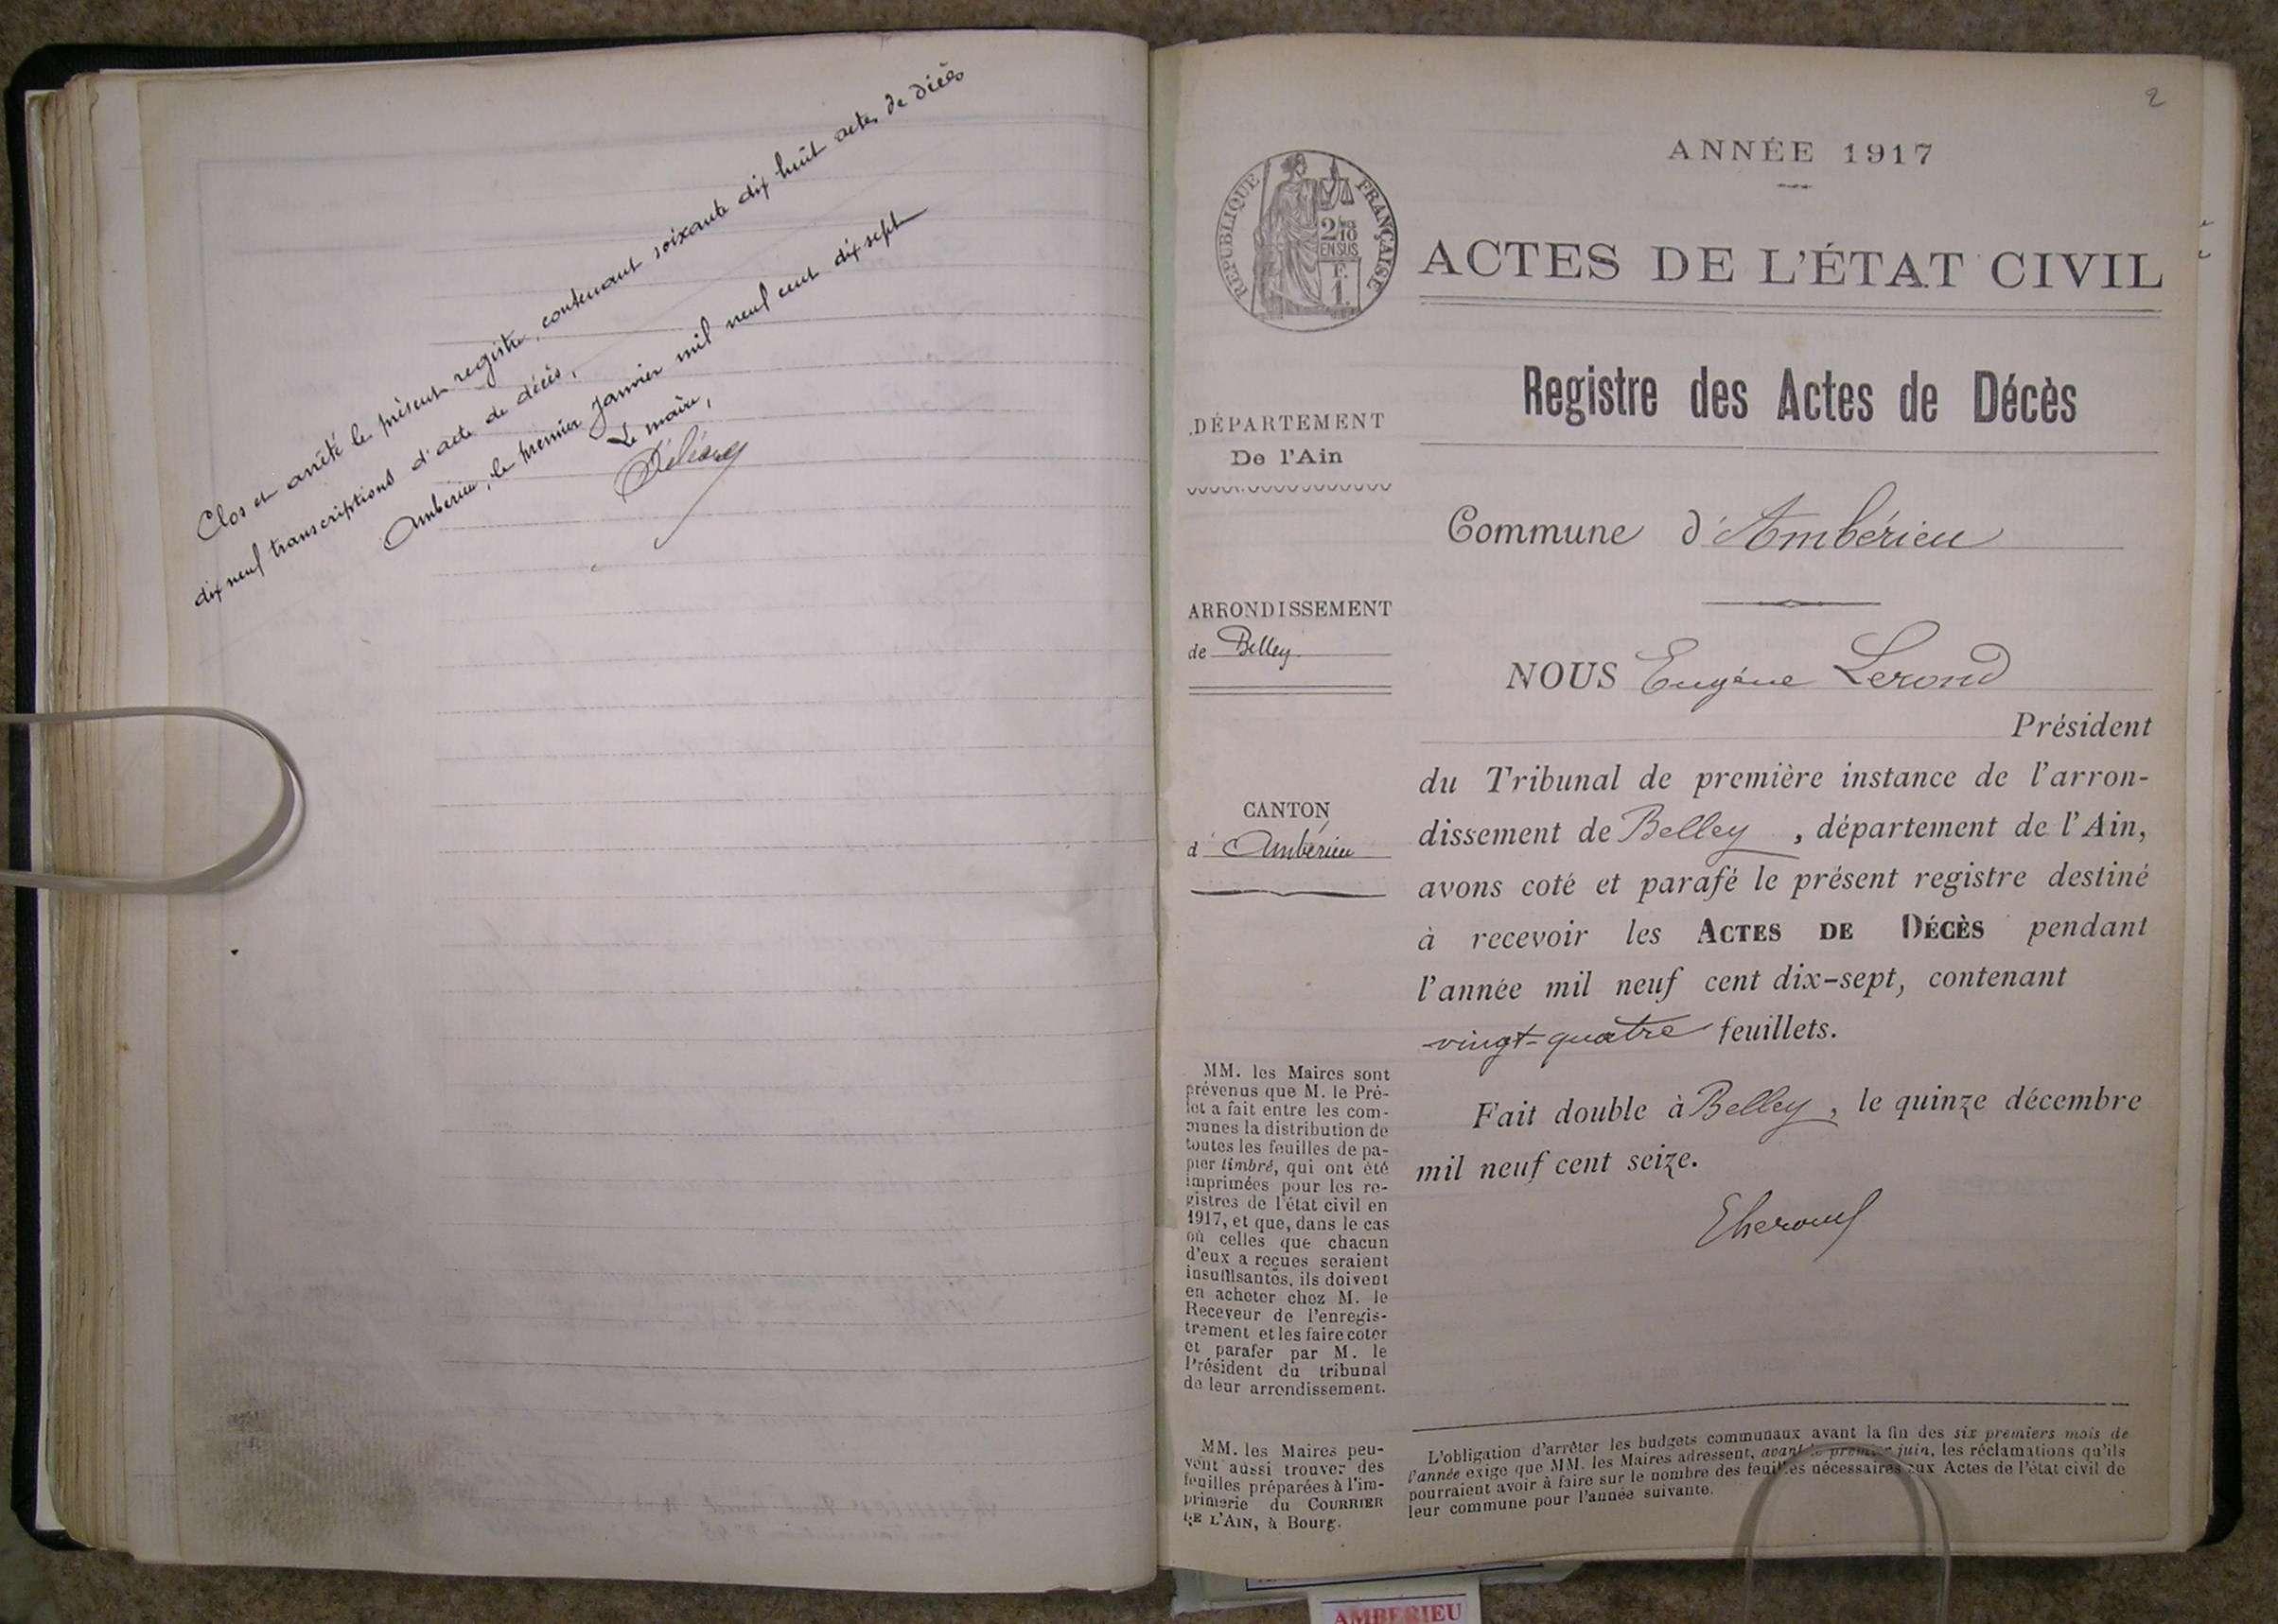 Clos et arrêté le présent registre, contenant soixante dix huit actes de décès
dix neuf transcriptions d'acte de décès,
Ambérieu, le premier Janvier mil neuf cent dix sept
Le maire,
2
ANNÉE 1917
RÉPUBLIQUE FRANÇAISE
2/10
EN SUS
F.
1.
ACTES DE L'ÉTAT CIVIL
Registre des Actes de Décès
DÉPARTEMENT
De l'Ain
Commune d'Ambérieu
ARRONDISSEMENT
de Belley
CANTON
d'Ambérieu
NOUS Eugène Lerond
Président
du Tribunal de première instance de l'arron-
dissement de Belley, département de l'Ain,
avons coté et parafé le présent registre destiné
à recevoir les ACTES DE DÉCÈS pendant
l'année mil neuf cent dix-sept, contenant
vingt-quatre feuillets.
Fait double à Belley, le quinze décembre
mil neuf cent seize.
MM. les Maires sont
prévenus que M. le Pré-
fet a fait entre les com-
munes la distribution de
toutes les feuilles de pa-
pier timbré, qui ont été
imprimées pour les re-
gistres de l'état civil en
1917, et que, dans le cas
où celles que chacun
d'eux a reçues seraient
insuffisantes, ils doivent
en acheter chez M. le
Receveur de l'enregis-
trement et les faire coter
et parafer par M. le
Président du tribunal
de leur arrondissement.
MM. les Maires peu-
vent aussi trouver des
feuilles préparées à l'im-
primerie du COURRIER
DE L'AIN, à Bourg.
L'obligation d'arrêter les budgets communaux avant la fin des six premiers mois de
l'année exige que MM. les Maires adressent, avant le premier juin, les réclamations qu'ils
pourraient avoir à faire sur le nombre des feuilles nécessaires aux Actes de l'état civil de
leur commune pour l'année suivante.
AMBERIEU